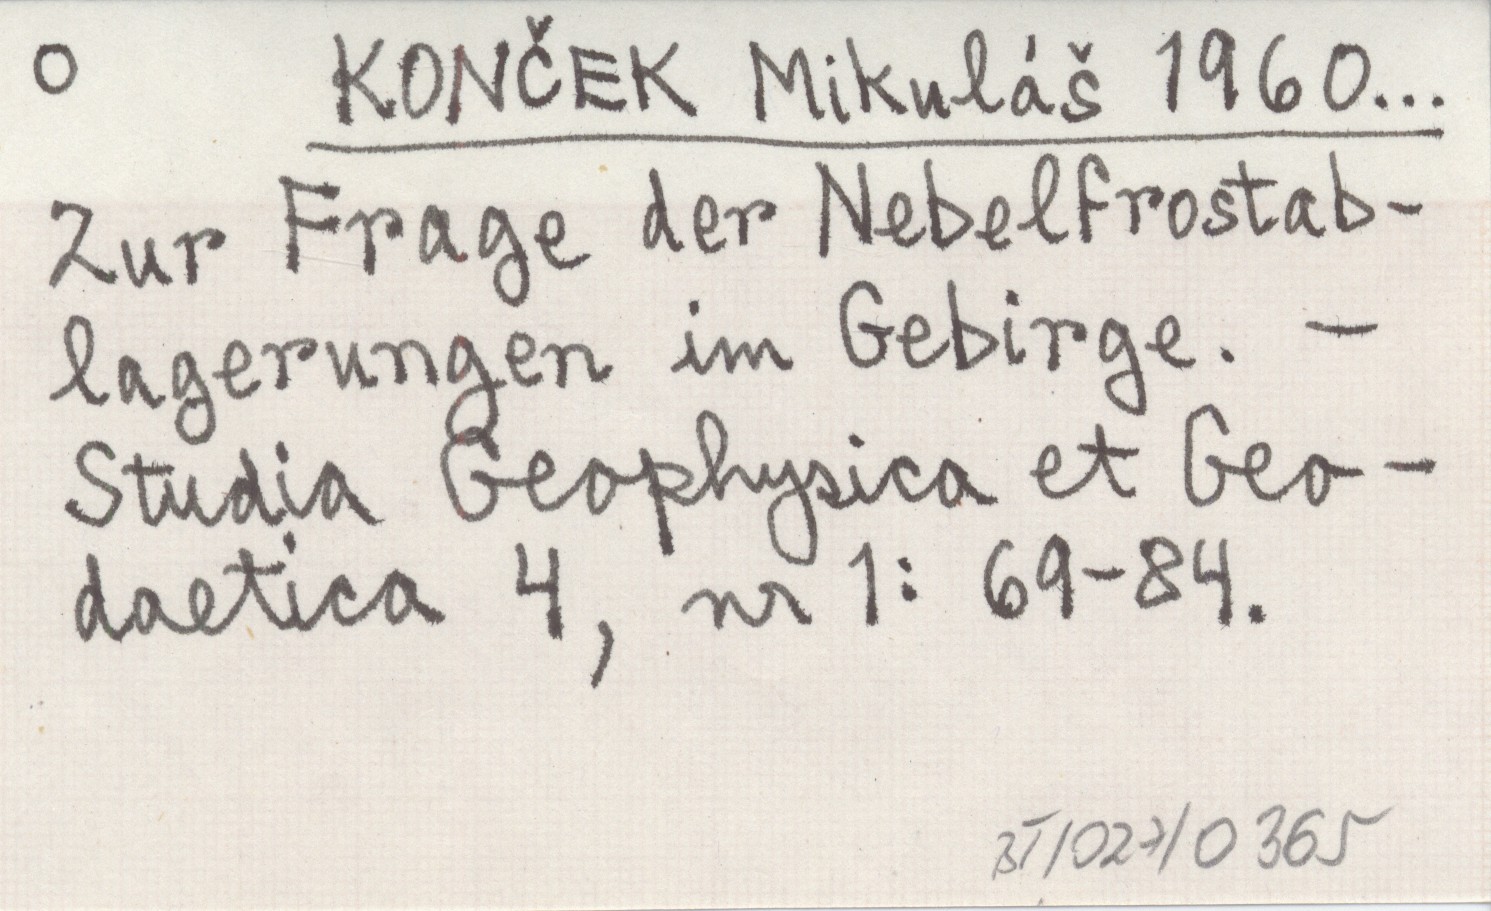 O KONČEK Mikuláš 1960...
Zur Frage der Nebelfrostab-
lagerungen im Gebirge. -
Studia Geophysica et Geo-
daetica 4, nr 1: 69-84.
BT/027/0365